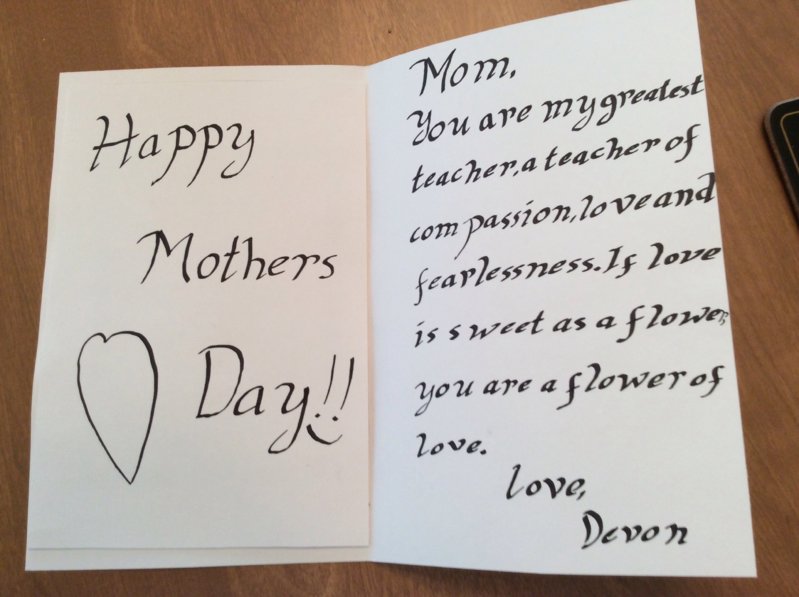 Happy
Mothers
Day!!
Mom,
You are my greatest
teacher, a teacher of
compassion, love and
fearlessness. If love
is sweet as a flower,
you are a flower of
love.
love,
Devon